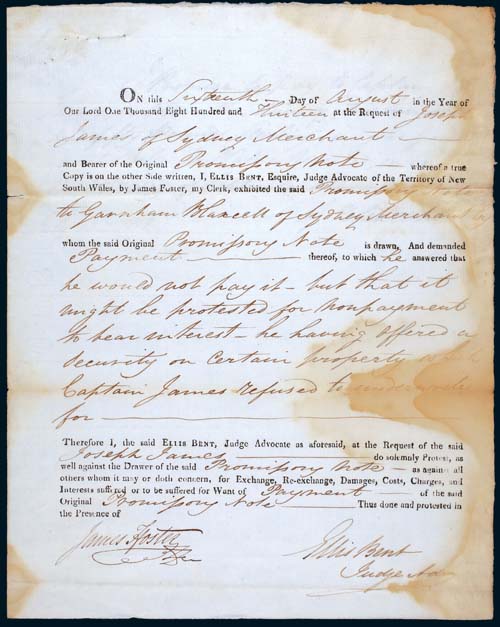 ON this Sixteenth Day of August in the Year of
Our Lord One Thousand Eight Hundred and Thirteen at the Request of Joseph
James of Sydney Merchant
and Bearer of the Original Promissory Note whereof a true
Copy is on the other Side written, I, ELLIS BENT, Esquire, Judge Advocate of the Territory of New
South Wales, by James Foster, my Clerk, exhibited the said Promissory
to Garnham Blaxcell of Sydney Merchant
whom the said Original Promissory Note is drawn, And demanded
Payment thereof, to which he answered that
he would not pay it – but that it
might be protested for nonpayment
to bear interest – he having offered a
security on certain property
Captain James refused to
for
Therefore I, the said ELLIS BENT, Judge Advocate as aforesaid, at the Request of the said
Joseph James do solemnly Protest, as
well against the Drawer of the said Promissory Note – as against all
others whom it may or doth concern, for Exchange, Re-exchange, Damages, Costs, Charges, and
Interests suffered or to be suffered for Want of Payment of the said
Original Promissory Note Thus done and protested in
the Presence of
James Foster
Ellis Bent
Judge